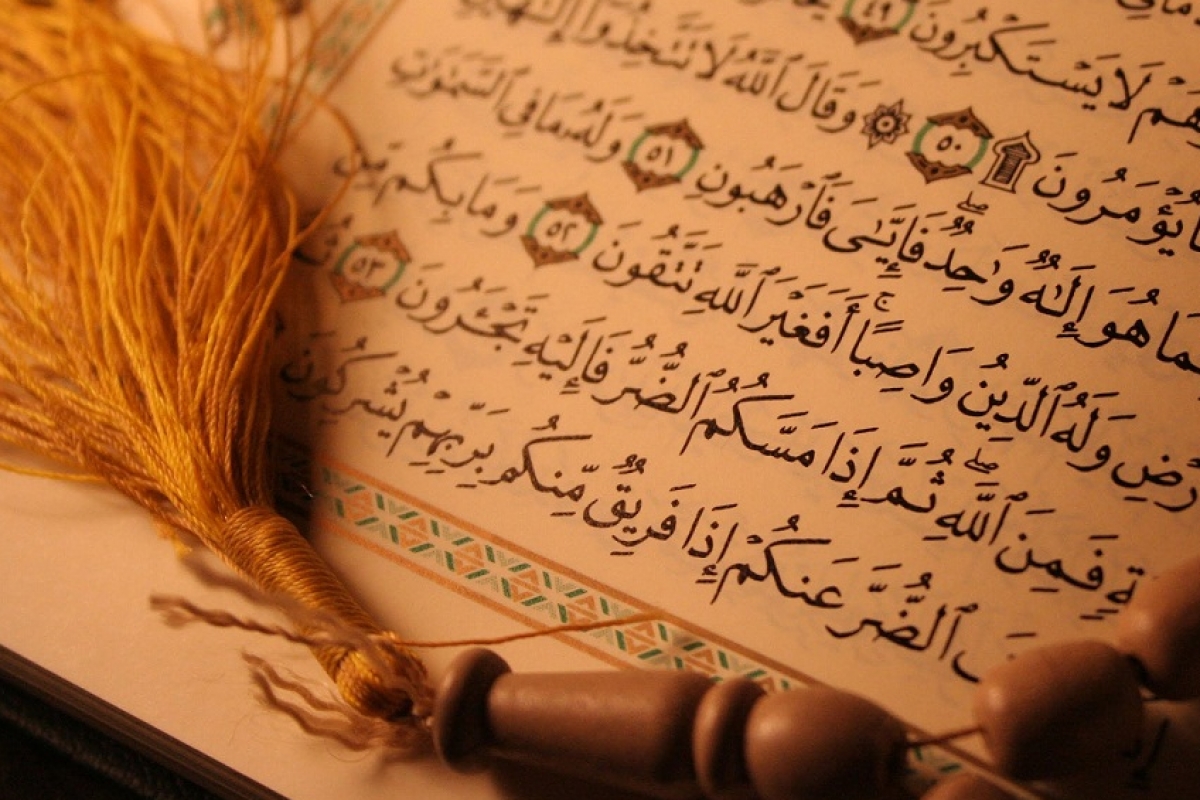 هُمْ لَا يَسْتَكْبِرُونَ ٤٩
يُؤْمَرُونَ ۩ ٥٠ ۞ وَقَالَ ٱللَّهُ لَا تَتَّخِذُوٓا۟
ـمَا هُوَ إِلَٰهٌ وَٰحِدٌ ۖ فَإِيَّـٰىَ فَٱرْهَبُونِ ٥١ وَلَهُۥ مَا فِى ٱلسَّمَٰوَٰتِ
رْضِ وَلَهُ ٱلدِّينُ وَاصِبًا ۚ أَفَغَيْرَ ٱللَّهِ تَتَّقُونَ ٥٢ وَمَا بِكُم مِّن
ـةٍ فَمِنَ ٱللَّهِ ۖ ثُمَّ إِذَا مَسَّكُمُ ٱلضُّرُّ فَإِلَيْهِ تَجْـَٔرُونَ ٥٣
ٱلضُّرَّ عَنكُمْ إِذَا فَرِيقٌ مِّنكُم بِرَبِّهِمْ يُشْرِكُونَ